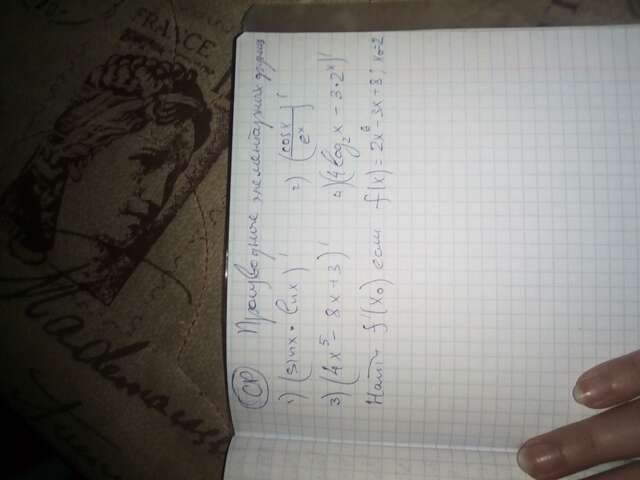 СР Производные элементарных функц
1) (sinx · lnx)' 2) (cosx/eˣ)'
3) (4x⁵ - 8x + 3)' 4) (4log₂x - 3·2ˣ)'
Найти f'(x₀) если f(x) = 2x⁶ - 3x + 8; x₀=2
FRANCE
Mademoiselle